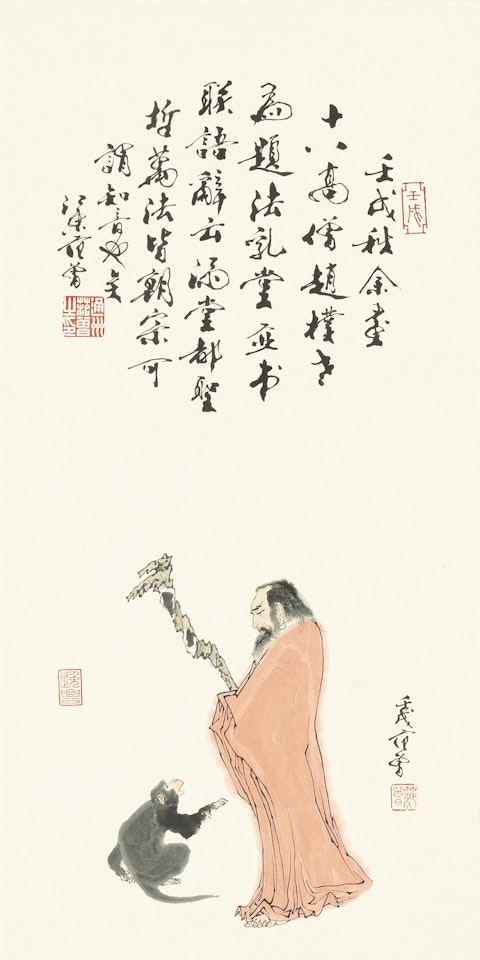 壬戌
壬戌秋余畫
十八高僧趙樸老
為題法乳堂並书
聯語辭云滿堂都聖
哲萬法皆朝宗可
謂知音也矣
江东范曾
壬戌范曾